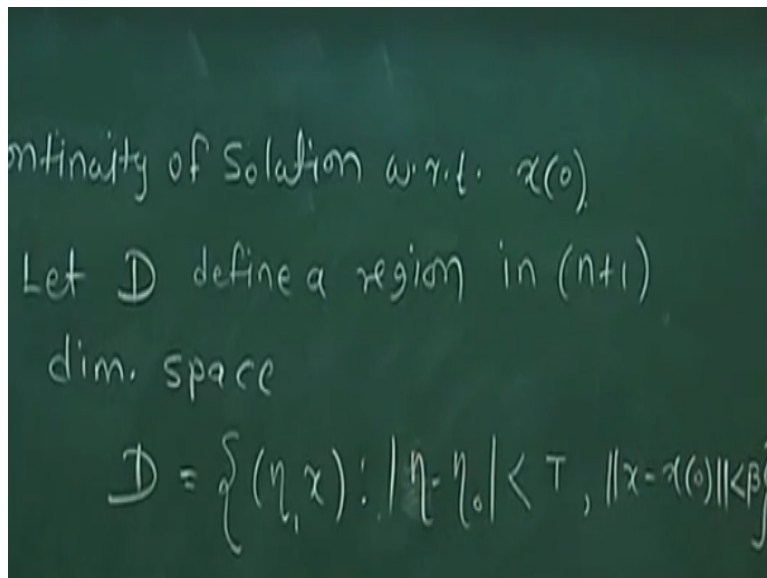 ontinuity of Solution w.r.t. x(0)
Let D define a region in (n+1)
dim. space
D = {(η, x) : |η - η₀| < T, ||x - x(0)|| < β}